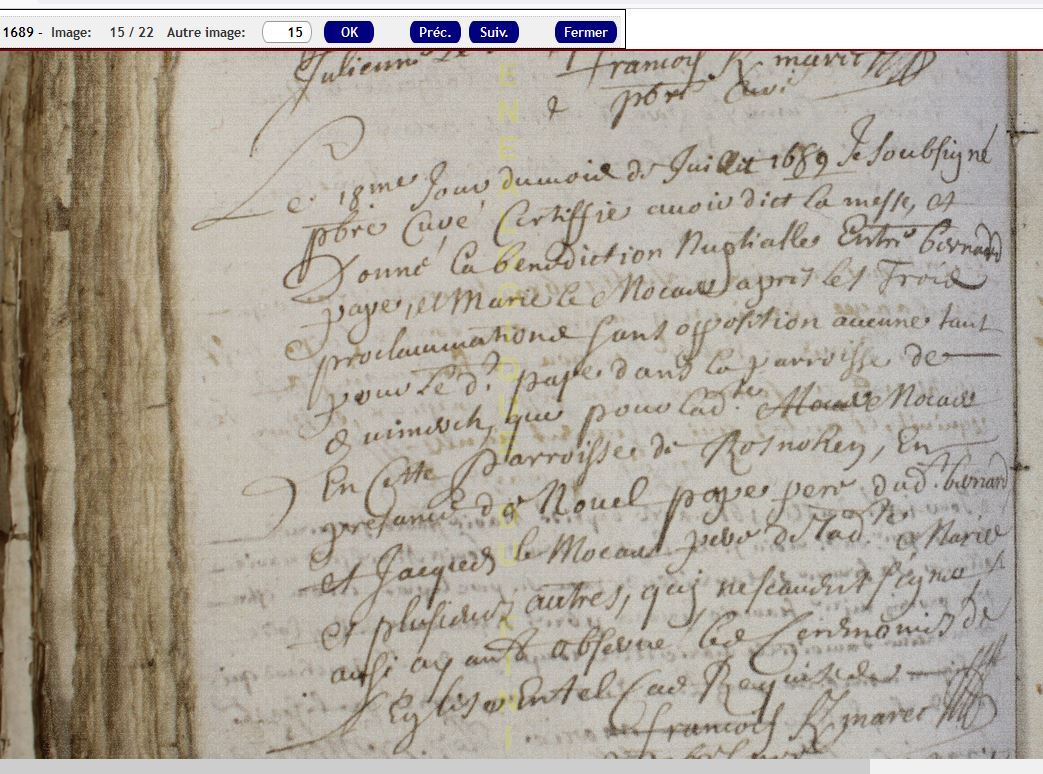 1689 - Image: 15 / 22 Autre image: 15 OK Préc. Suiv. Fermer
Julienne Le
francois K maret
pbre Curé
Le 18me Jour du mois de Juillet 1689 Je Soubsigné
pbre Curé Certiffie avoir dict la messe, et
Donné la benediction Nuptialle Entre bernard
pape, et Marie le Mocaer apres les Trois
proclamations sans opposition aucune tant
pour le d. pape dans la parroisse de
quimerch, que pour lad.te Mocaer
En Cette parroisse de Rosnohen, En
presance de Nouel pape pere dud. bernard
et Jacques le Mocaer pere de lad.te Marie
et plusieurs autres, qui ne scavent signe,
aussi ayant observe les Ceremonies de
Eglise En tel Cas Requises
francois K maret